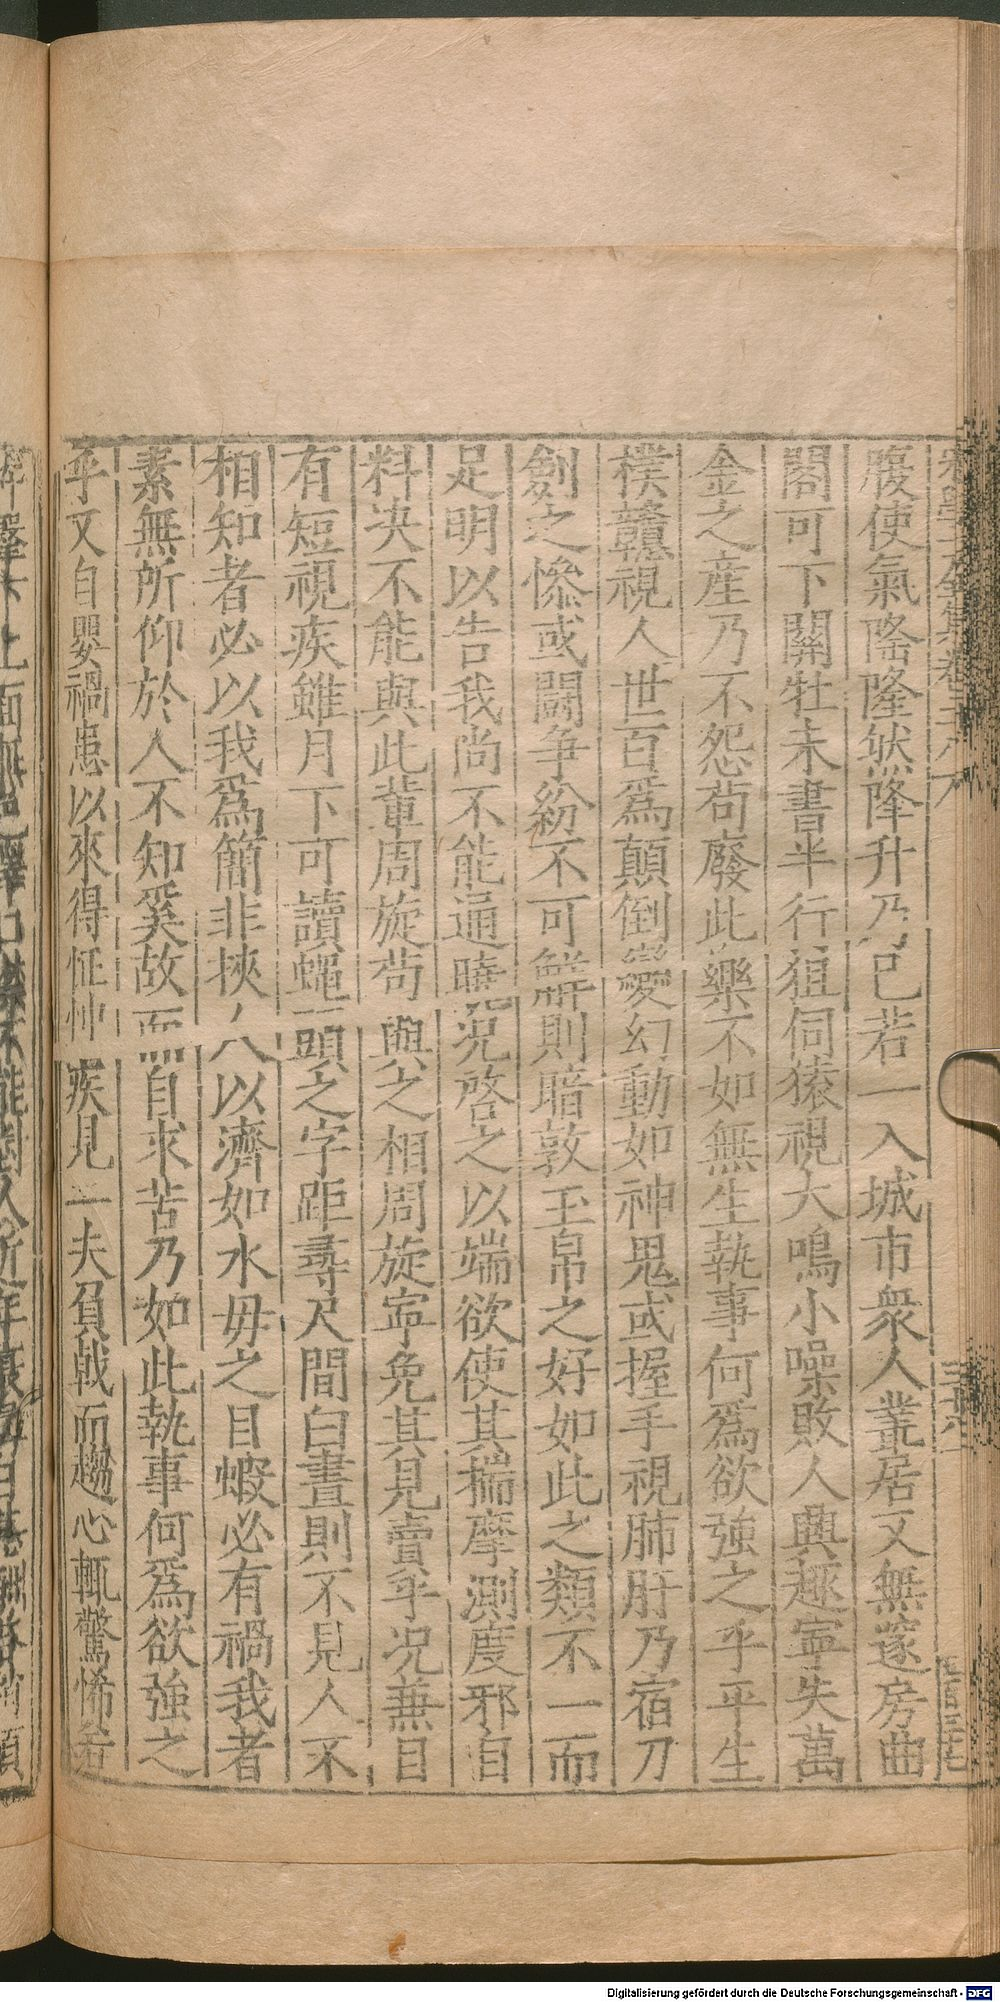 腹使氣隆隆然降升乃已若一入城市衆人叢居又無邃房曲
閤可下關牡未書半行狙伺猿視大鳴小噪敗人興趣寧失萬
金之産乃不怨苟廢此樂不如無生執事何爲欲強之乎平生
樸戇視人世百爲顛倒變幻動如神鬼或握手視肺肝乃宿刀
劍之慘或鬪争紛不可解則暗敦玉帛之好如此之類不一而
足明以告我尚不能通曉况啓之以端欲使其揣摩測度邪自
料决不能與此輩周旋苟與之相周旋寧免其見賣乎况兼目
有短視疾雖月下可讀蠅頭之字距尋尺間白晝則不見人不
相知者必以我爲簡非挾人以濟如水母之目蝦必有禍我者
素無所仰於人不知奚故而自求苦乃如此執事何爲欲強之
乎又自嬰禍患以來得怔忡疾見一夫負戟而趨心輒驚怖若
Digitalisierung gefördert durch die Deutsche Forschungsgemeinschaft - DFG